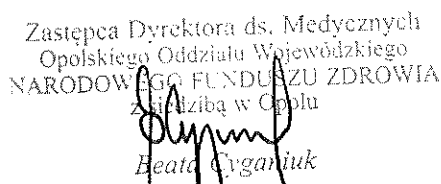 Zastępca Dyrektora ds. Medycznych
Opolskiego Oddziału Wojewódzkiego
NARODOWEGO FUNDUSZU ZDROWIA
z siedzibą w Opolu
Beata Cyganiuk